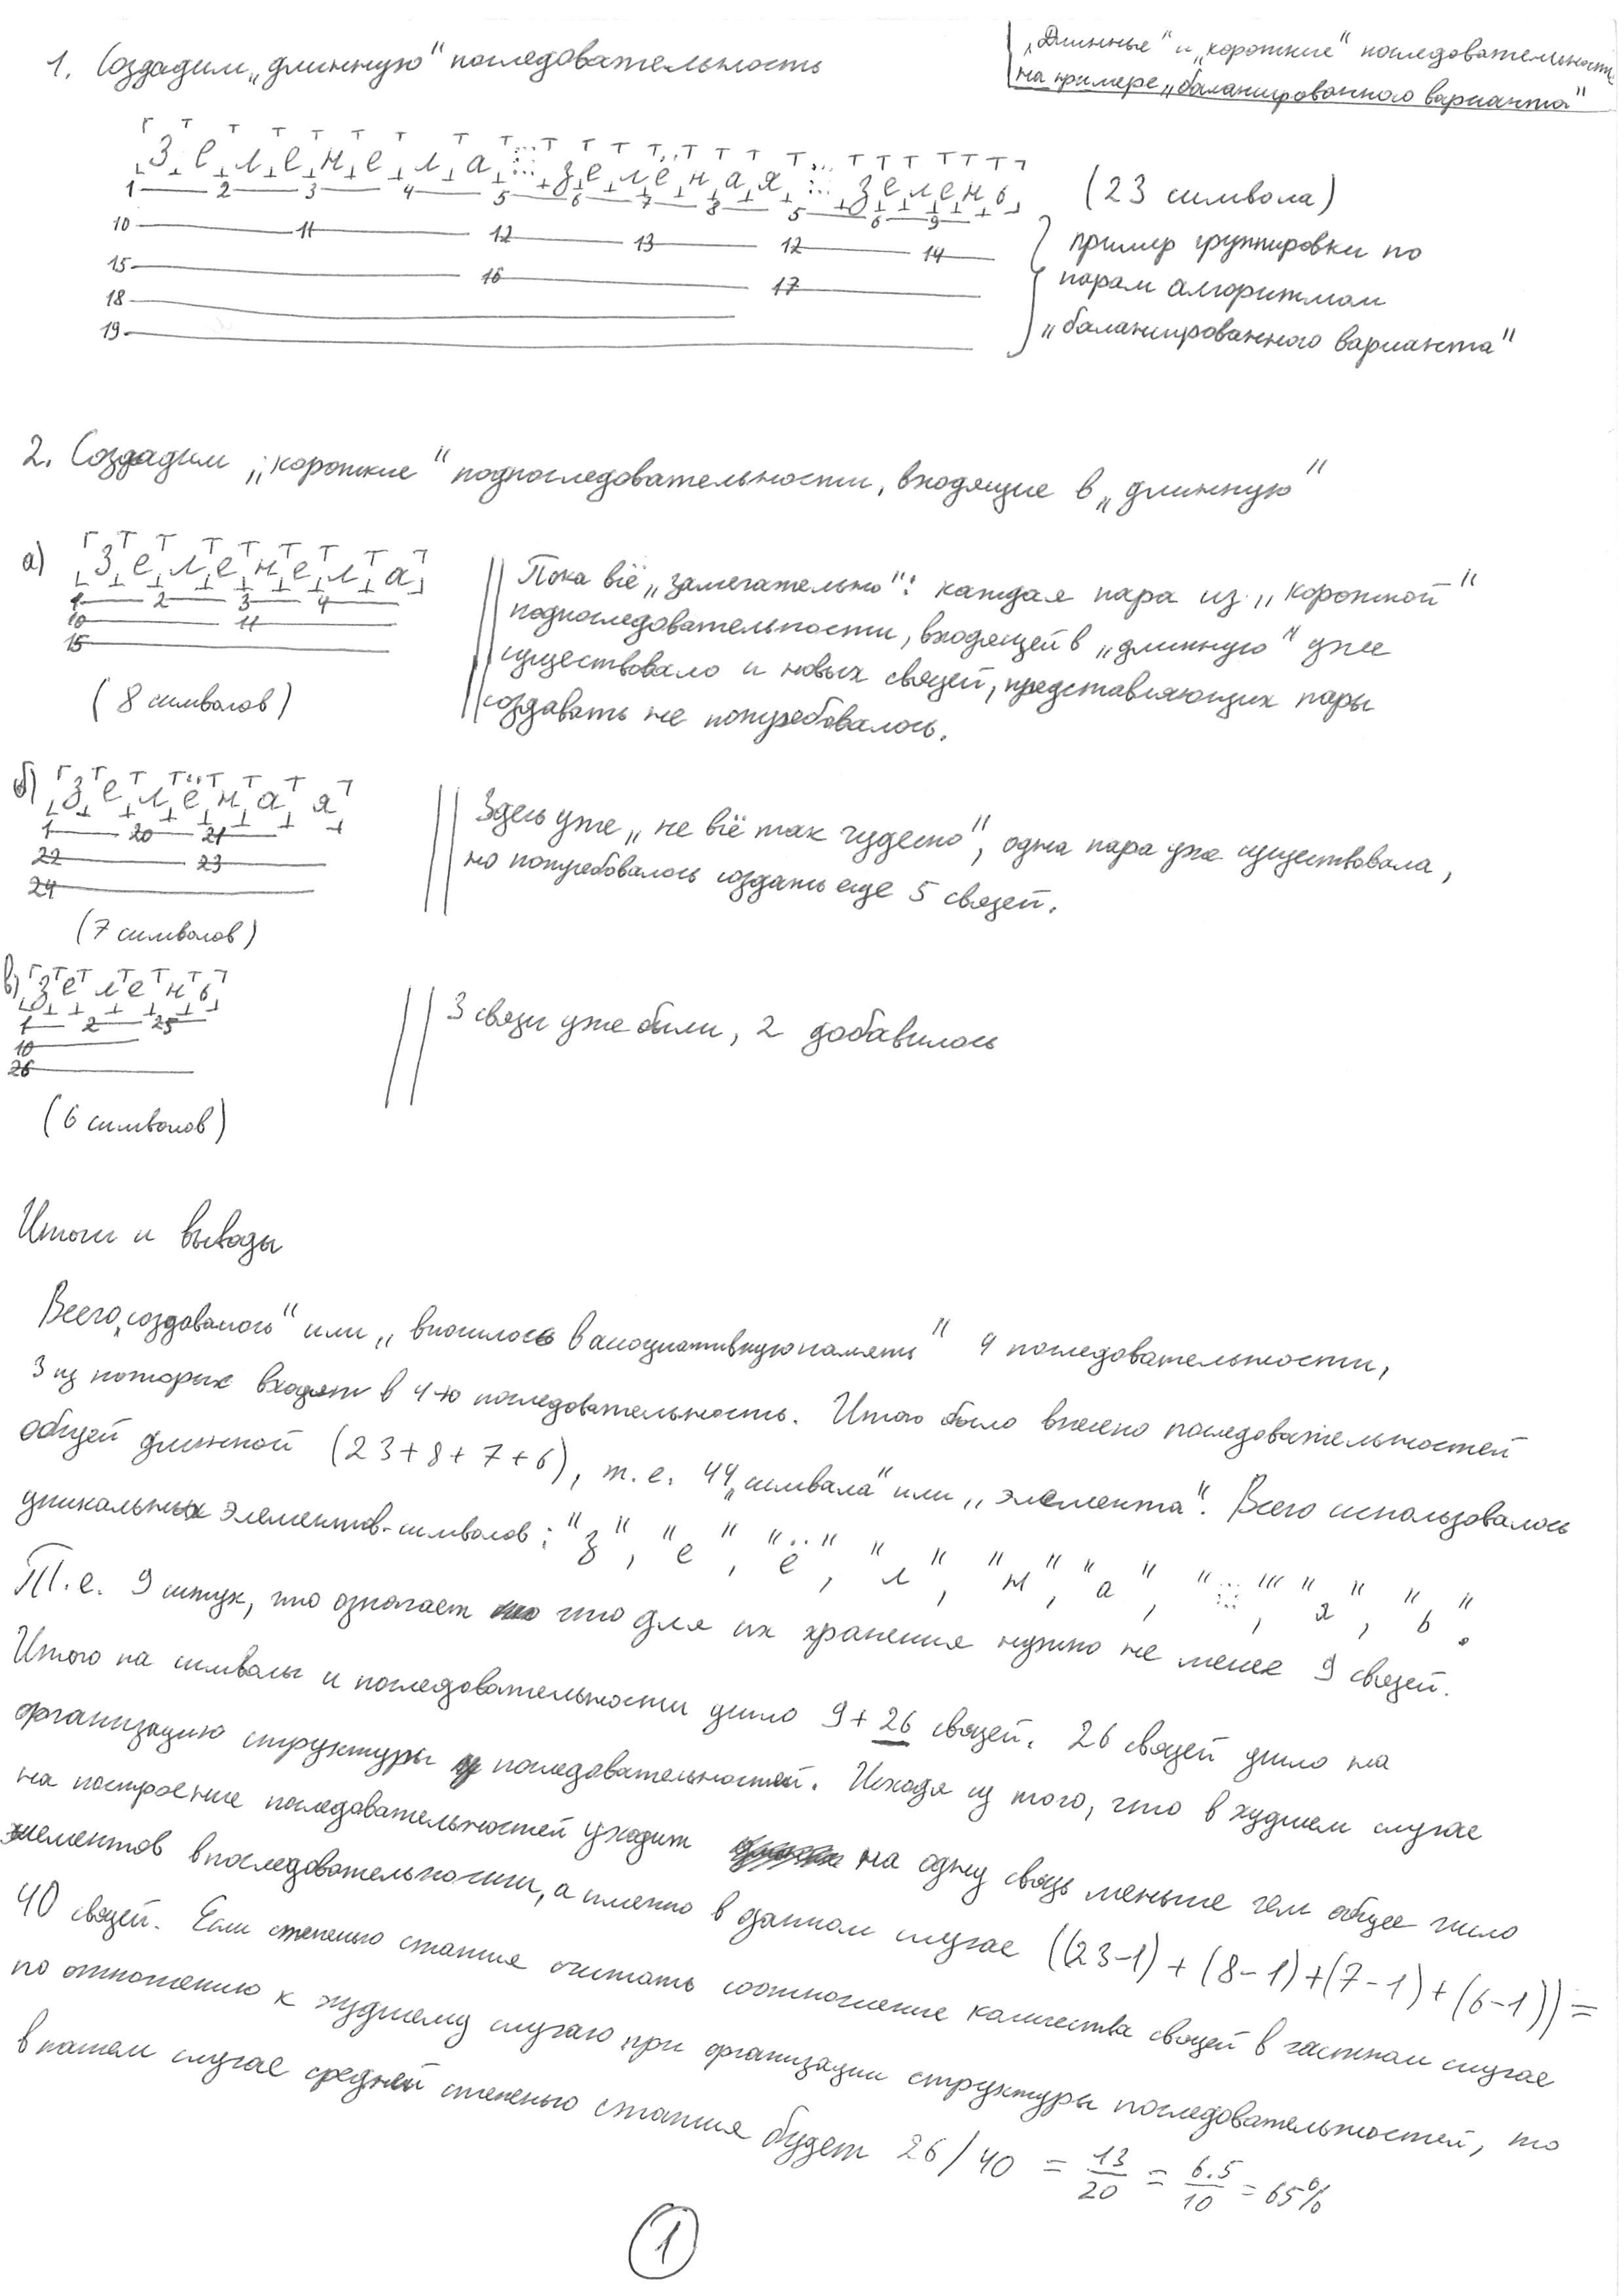 „Длинные“ и „короткие“ последовательности
на примере „балансированного варианта“
1. Создадим „длинную“ последовательность
Зеленела зелёная зелень
(23 символа)
1 2 3 4 5 6 7 8 5 6 9
10 11 12 13 12 14
15 16 17
18
19
пример группировки по
парам алгоритмом
„балансированного варианта“
2. Создадим „короткие“ подпоследовательности, входящие в „длинную“
а) Зеленела
1 2 3 4
10 11
15
(8 символов)
Пока всё „замечательно“: каждая пара из „короткой“
подпоследовательности, входящей в „длинную“ уже
существовало и новых связей, представляющих пары
создавать не потребовалось.
б) Зелёная
1 20 21
22 23
24
(7 символов)
Здесь уже „не всё так чудесно“, одна пара уже существовала,
но потребовалось создать еще 5 связей.
в) Зелень
1 2 25
10
26
(6 символов)
3 связи уже были, 2 добавилось
Итоги и выводы
Всего „создавалось“ или „вносилось в ассоциативную память“ 4 последовательности,
3 из которых входят в 4-ю последовательность. Итого было внесено последовательностей
общей длинной (23+8+7+6), т.е. 44 „символа“ или „элемента“. Всего использовалось
уникальных элементов-символов: "з", "е", "ё", "л", "н", "а", " ", "я", "ь".
Т.е. 9 штук, что означает что для их хранения нужно не менее 9 связей.
Итого на символы и последовательности ушло 9+26 связей. 26 связей ушло на
организацию структуры последовательностей. Исходя из того, что в худшем случае
на построение последовательностей уходит на одну связь меньше чем общее число
элементов в последовательности, а именно в данном случае ((23-1)+(8-1)+(7-1)+(6-1))=
40 связей. Если степенью сжатия считать соотношение количества связей в частном случае
по отношению к худшему случаю при организации структуры последовательностей, то
в нашем случае средней степенью сжатия будет 26/40 = 13/20 = 6.5/10 = 65%
1